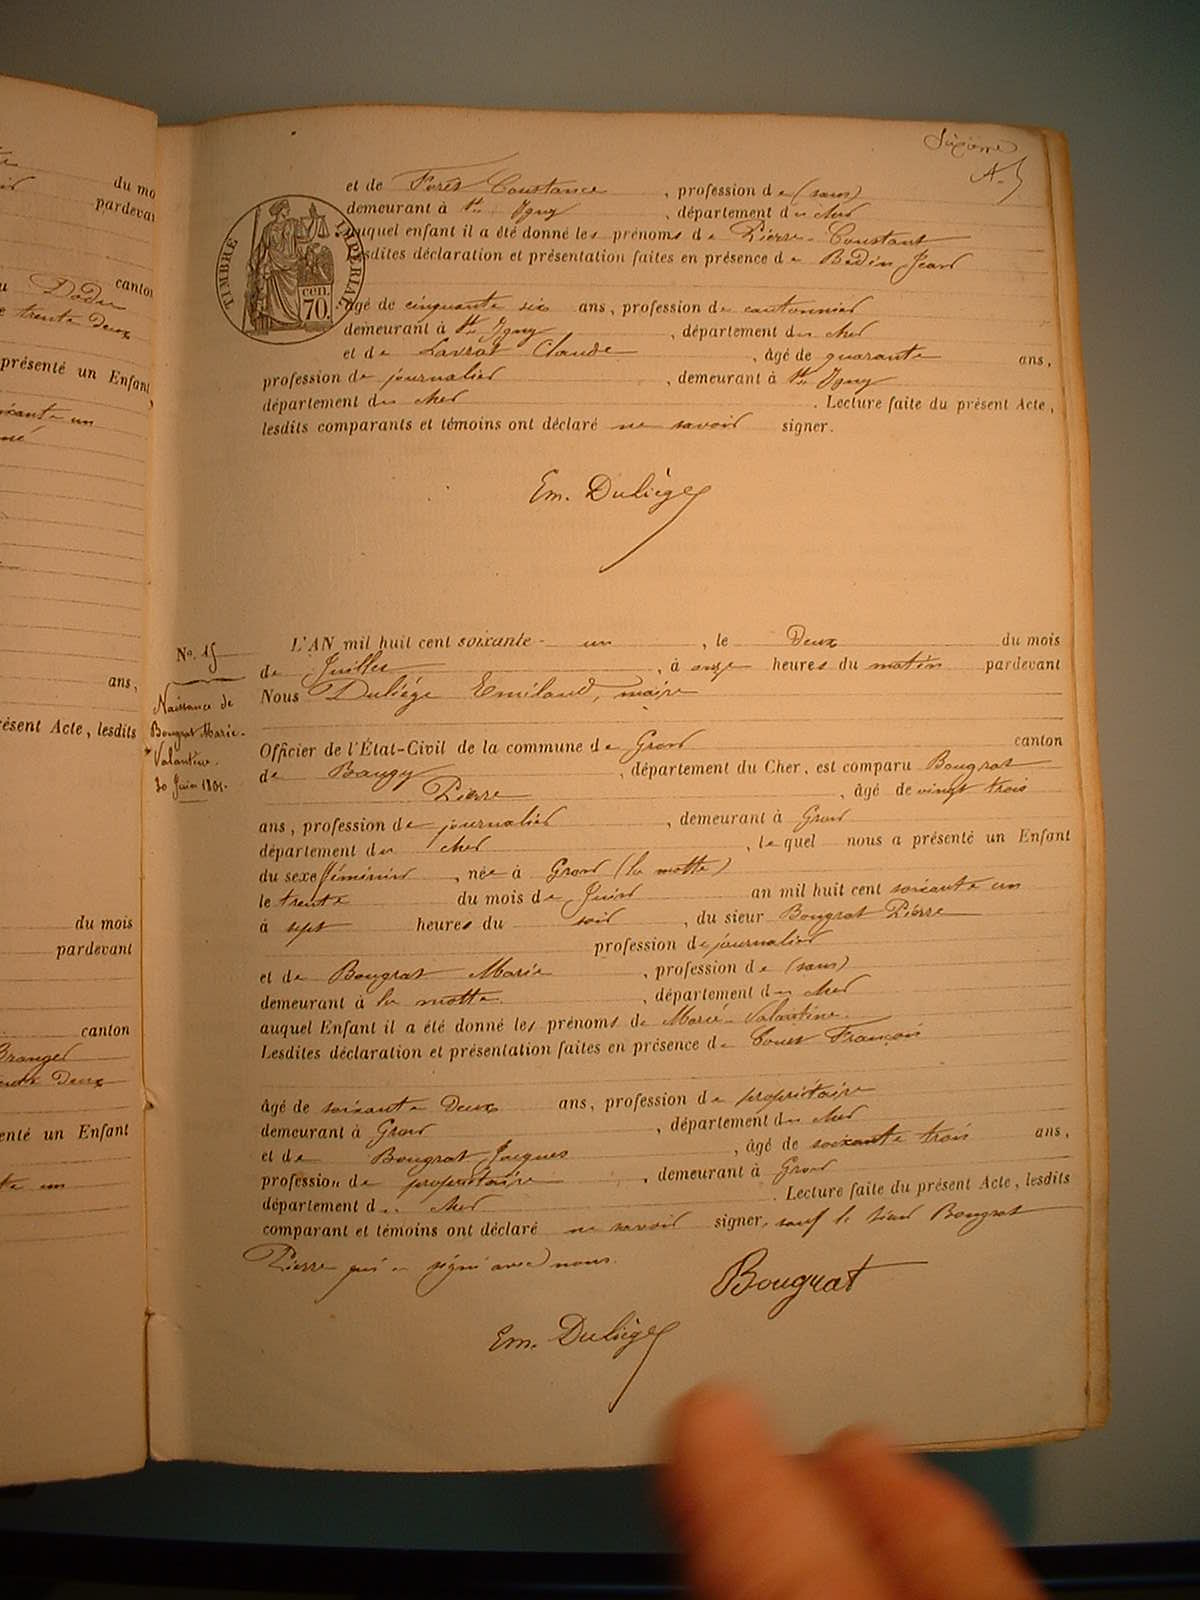 Sixième
A.
et de Forêt Constance, profession de (sans)
demeurant à Ste Igny, département du cher
auquel enfant il a été donné les prénoms de Pierre-Constant
Lesdites déclaration et présentation faites en présence de Bedin Jean
TIMBRE IMPERIAL
cen. 70.
âgé de cinquante six ans, profession de cantonnier
demeurant à Ste Igny, département du cher
et de Lavrat Claude, âgé de quarante ans,
profession de journalier, demeurant à Ste Igny
département du cher. Lecture faite du présent Acte,
lesdits comparants et témoins ont déclaré ne savoir signer.
Em. Duliège
No. 15
Naissance de
Bougrat Marie-
Valantine.
30 Juin 1861.
L'AN mil huit cent soixante-un, le Deux du mois
de Juillet, à onze heures du matin pardevant
Nous Duliége Emiland, maire
Officier de l'État-Civil de la commune de Gron canton
de Baugy, département du Cher, est comparu Bougrat
Pierre, âgé de vingt trois
ans, profession de journalier, demeurant à Gron
département du cher, lequel nous a présenté un Enfant
du sexe féminin, née à Gron (la motte)
le trente du mois de Juin an mil huit cent soixante un
à sept heures du soir, du sieur Bougrat Pierre
profession de journalier
et de Bougrat Marie, profession de (sans)
demeurant à la motte, département du cher
auquel Enfant il a été donné les prénoms de Marie-Valantine.
Lesdites déclaration et présentation faites en présence de Couet François
âgé de soixante Deux ans, profession de propriétaire
demeurant à Gron, département du cher
et de Bougrat Jacques, âgé de soixante trois ans,
profession de propriétaire, demeurant à Gron
département du cher. Lecture faite du présent Acte, lesdits
comparant et témoins ont déclaré ne savoir signer, sauf le sieur Bougrat
Pierre qui a signé avec nous.
Bougrat
Em. Duliège
du mo
pardevan
canton
Dodu
trente Deux
présenté un Enfant
soixante un
ans,
résent Acte, lesdits
du mois
pardevant
canton
Deux
enté un Enfant
un